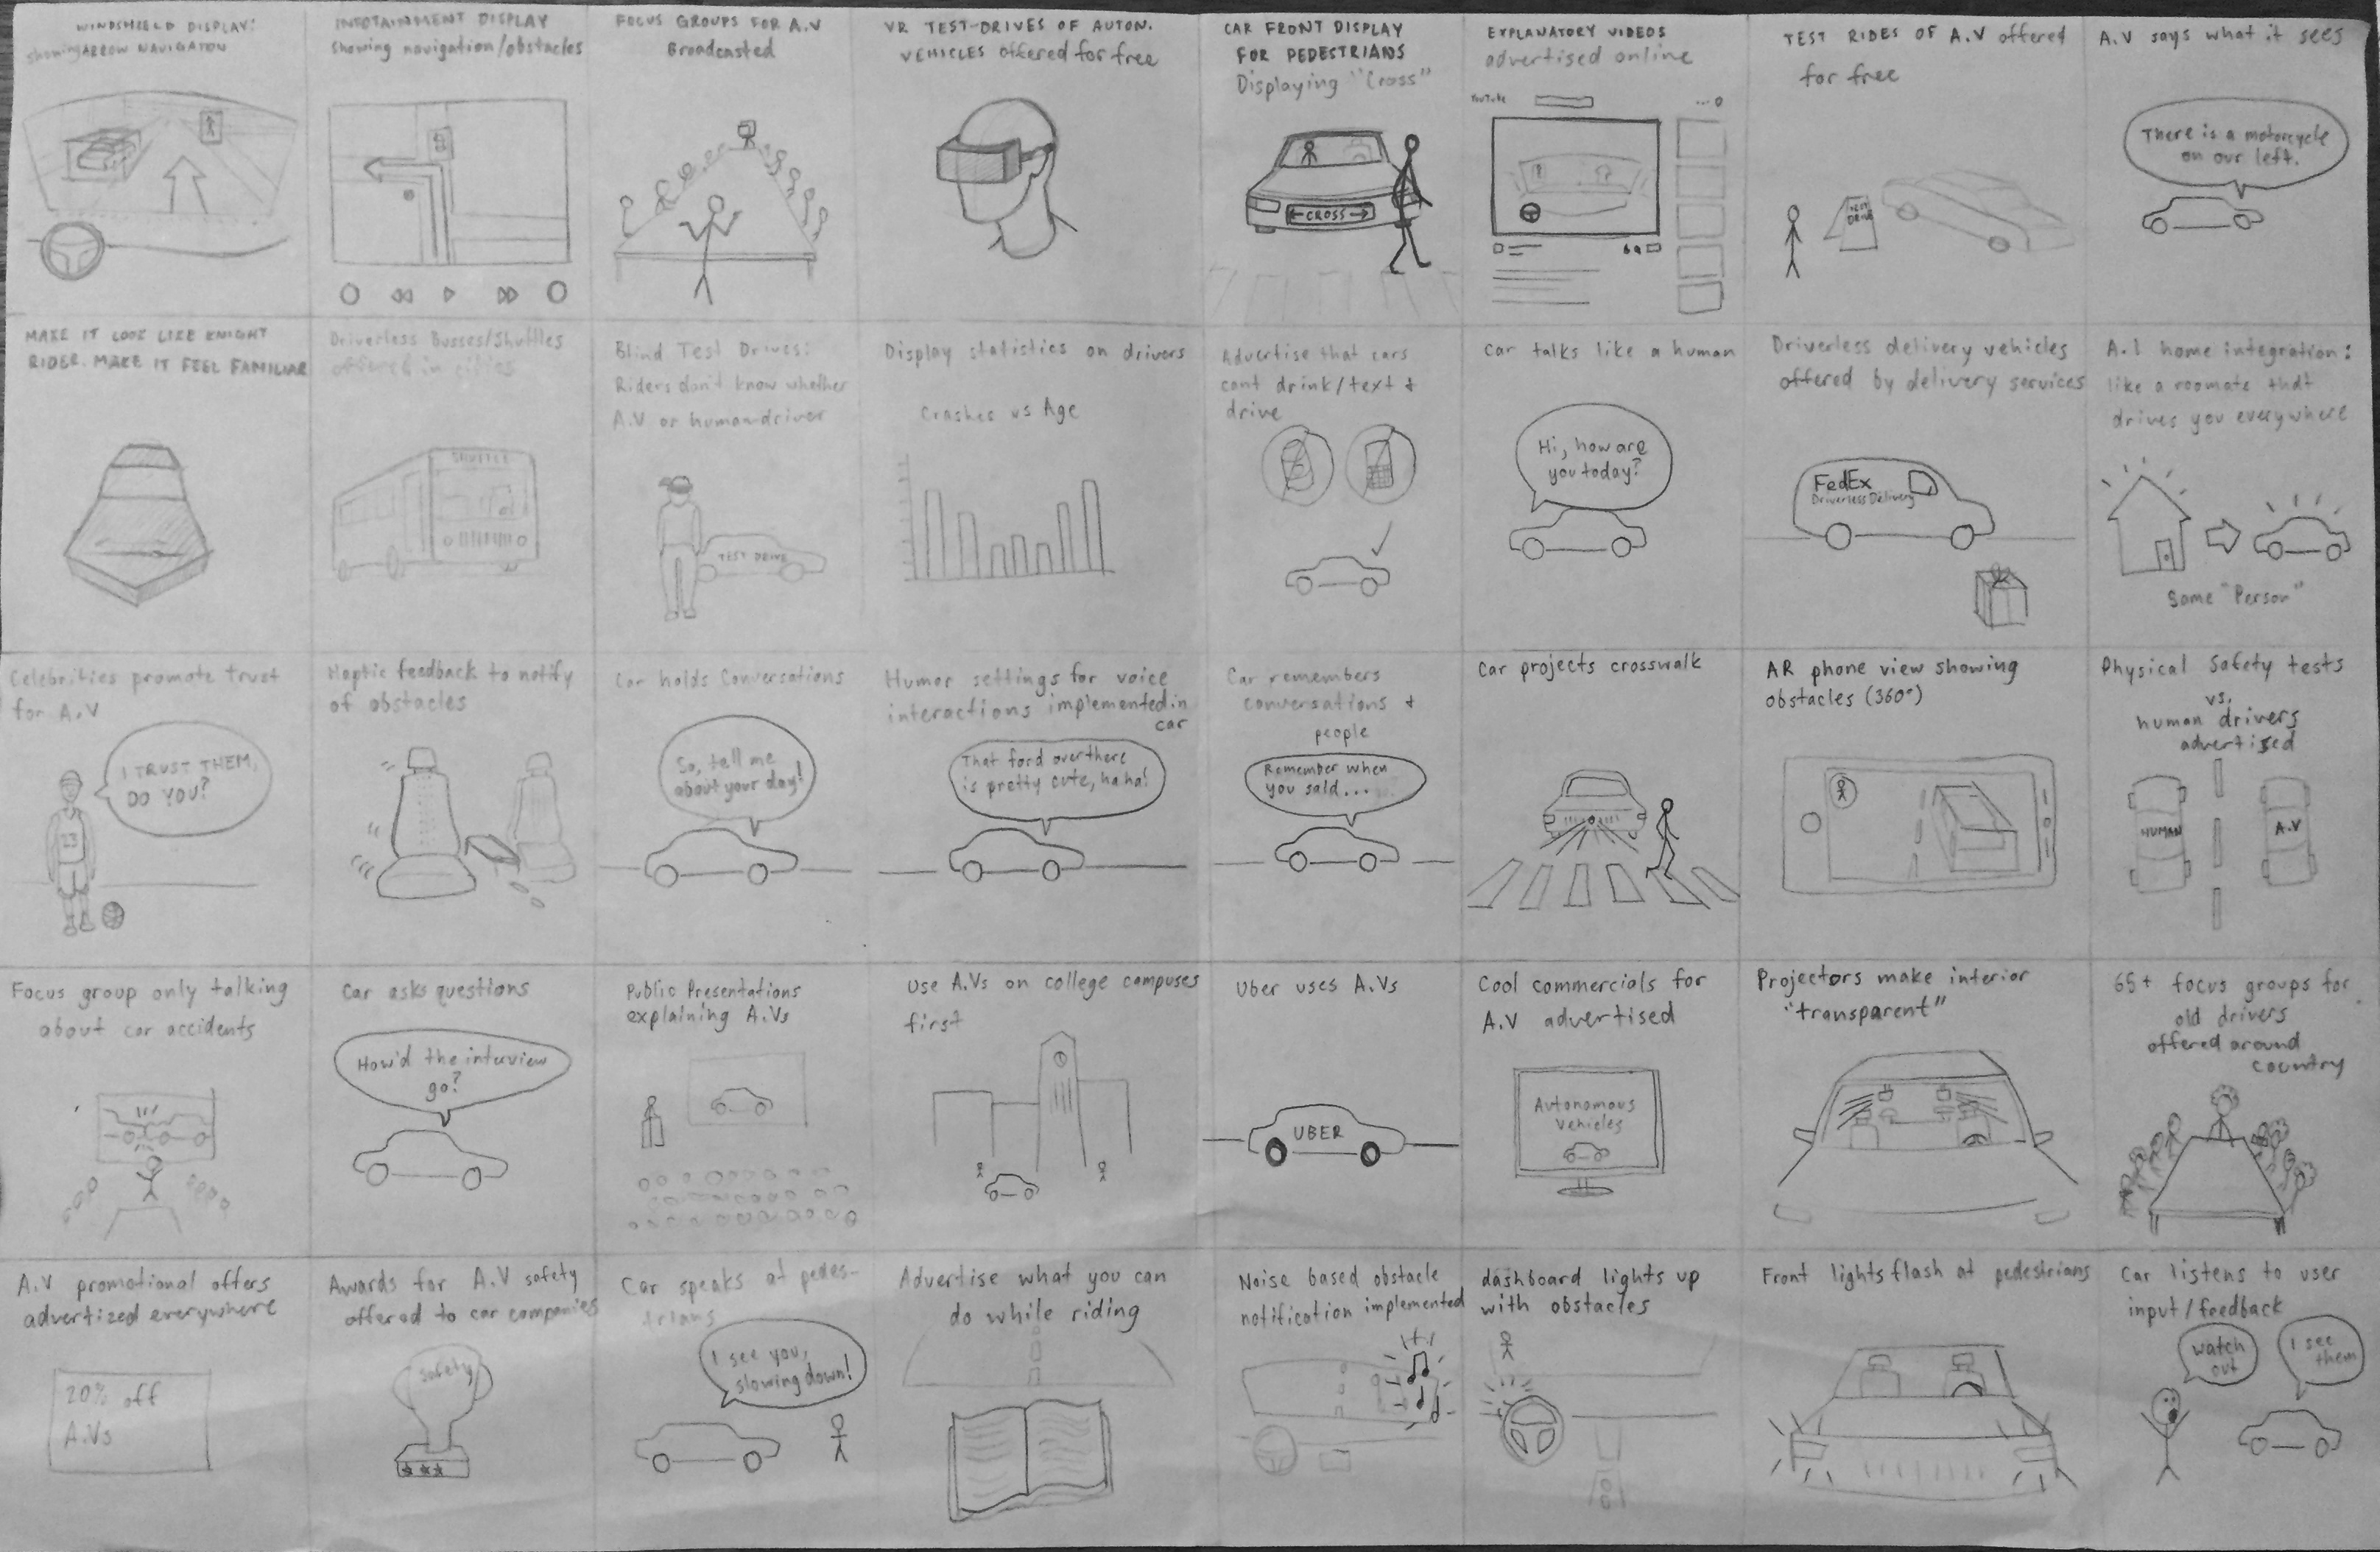 WINDSHIELD DISPLAY:
showing ARROW NAVIGATION
INFOTAINMENT DISPLAY
showing navigation/obstacles
FOCUS GROUPS FOR A.V
Broadcasted
VR TEST-DRIVES OF AUTON.
VEHICLES offered for free
CAR FRONT DISPLAY
FOR PEDESTRIANS
Displaying "Cross"
CROSS
EXPLANATORY VIDEOS
advertised online
YouTube
TEST RIDES OF A.V offered
for free
TEST
DRIVE
A.V says what it sees
There is a motorcycle
on our left.
MAKE IT LOOK LIKE KNIGHT
RIDER. MAKE IT FEEL FAMILIAR
Driverless Busses/Shuffles
offered in cities
SHUTTLE
Blind Test Drives:
Riders don't know whether
A.V or human driver
TEST DRIVE
Display statistics on drivers
Crashes vs Age
Advertise that cars
cant drink/text +
drive
Car talks like a human
Hi, how are
you today?
Driverless delivery vehicles
offered by delivery services
FedEx
Driverless Delivery
A.I home integration:
like a roomate that
drives you everywhere
Same "Person"
Celebrities promote trust
for A.V
I TRUST THEM,
DO YOU?
23
Haptic feedback to notify
of obstacles
Car holds Conversations
So, tell me
about your day!
Humor settings for voice
interactions implemented in
car
That ford over there
is pretty cute, haha!
Car remembers
conversations +
people
Remember when
you said...
Car projects crosswalk
AR phone view showing
obstacles (360°)
Physical Safety tests
vs.
human drivers
advertised
HUMAN
A.V
Focus group only talking
about car accidents
Car asks questions
How'd the interview
go?
Public Presentations
explaining A.Vs
Use A.Vs on college campuses
first
Uber uses A.Vs
UBER
Cool commercials for
A.V advertised
Autonomous
Vehicles
Projectors make interior
"transparent"
65+ focus groups for
old drivers
offered around
country
A.V promotional offers
advertized everywhere
20% off
A.Vs
Awards for A.V safety
offered to car companies
Safety
Car speaks at pedes-
trians
I see you,
slowing down!
Advertise what you can
do while riding
Noise based obstacle
notification implemented
dashboard lights up
with obstacles
Front lights flash at pedestrians
Car listens to user
input/feedback
watch
out
I see
them